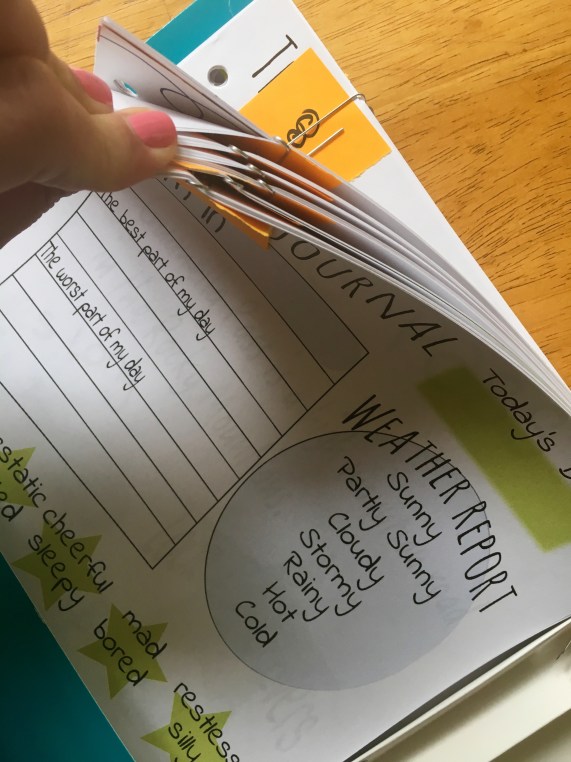 JOURNAL
Today's
The best part of my day
The worst part of my day
WEATHER REPORT
Sunny
Partly Sunny
Cloudy
Stormy
Rainy
Hot
Cold
cheerful
sleepy
mad
bored
restless
silly